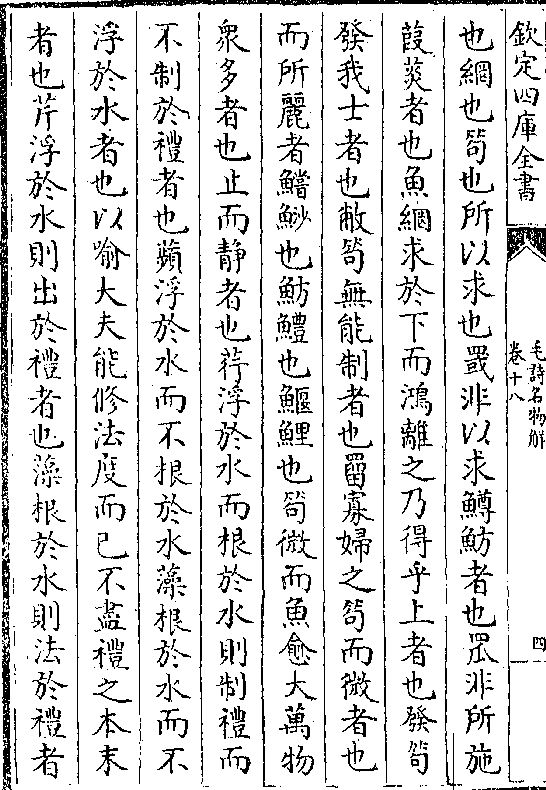 欽定四庫全書
毛詩名物解
卷十八
四
也網也笱也所以求也罭非以求鱒魴者也罛非所施
葭菼者也魚網求於下而鴻離之乃得乎上者也發笱
發我士者也敝笱無能制者也罶寡婦之笱而微者也
而所麗者鱨鯊也魴鱧也鰋鯉也笱微而魚愈大萬物
衆多者也止而静者也荇浮於水而根於水則制禮而
不制於禮者也蘋浮於水而不根於水藻根於水而不
浮於水者也以喻大夫能修法度而已不盡禮之本末
者也芹浮於水則出於禮者也藻根於水則法於禮者